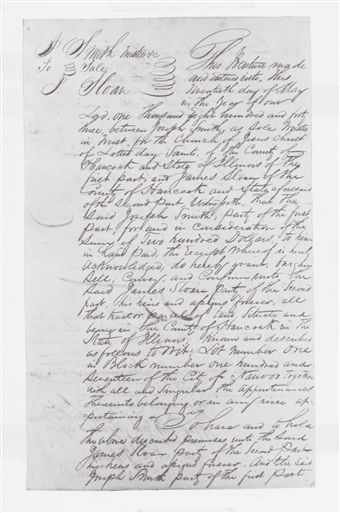 J Smith
To Sale
J Sloan
This Indenture made
and entered into this
Twentieth day of May
in the Year of our
Lord. one Thousand eight hundred and forty
three, between Joseph Smith, as Sole Trustee
in Trust for the Church of Jesus Christ
of Latter day Saints, of the County of
Hancock and State of Illinois of the
first part, and James Sloan of the
County of Hancock and State aforesaid
of the Second part, Witnesseth, that the
Said Joseph Smith, party of the first
part, for and in Consideration of the
Sum of Two hundred Dollars, to him
in hand Paid, the receipt whereof is hereby
acknowledged, do hereby grant, bargain
Sell, Convey, and Confirm unto the
Said James Sloan party of the Second
part, his heirs and assigns forever, all
that tract or parcel of land Situate and
being in the County of Hancock in the
State of Illinois Known and described
as follows to Wit: Lot Number One
in Block number one hundred and
Seventeen of the City of Nauvoo Together
with all and Singular the Appurtenances
thereunto belonging or in any wise ap
pertaining
To have and to hold
the above described premises unto the Said
James Sloan part of the Second Part
his heirs and assigns forever. And the Said
Joseph Smith part of the first Part